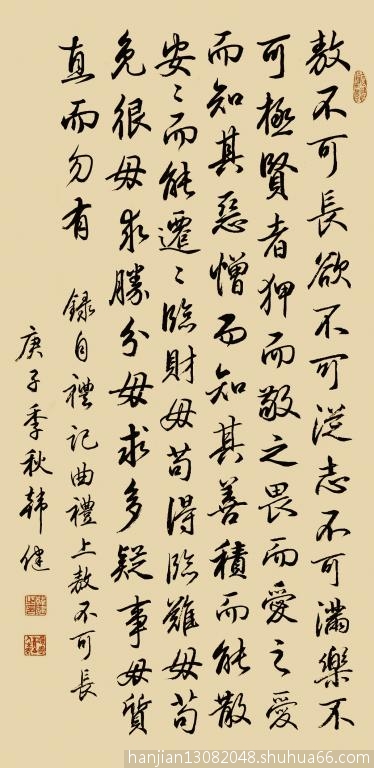 敖不可長欲不可從志不可滿樂不
可極賢者狎而敬之畏而愛之愛
而知其惡憎而知其善積而能散
安〻而能遷〻臨財毋苟得臨難毋苟
免很毋求勝分毋求多疑事毋質
直而勿有
録自禮記曲禮上敖不可長
庚子季秋韓健
hanjian13082048.shuhua66.com